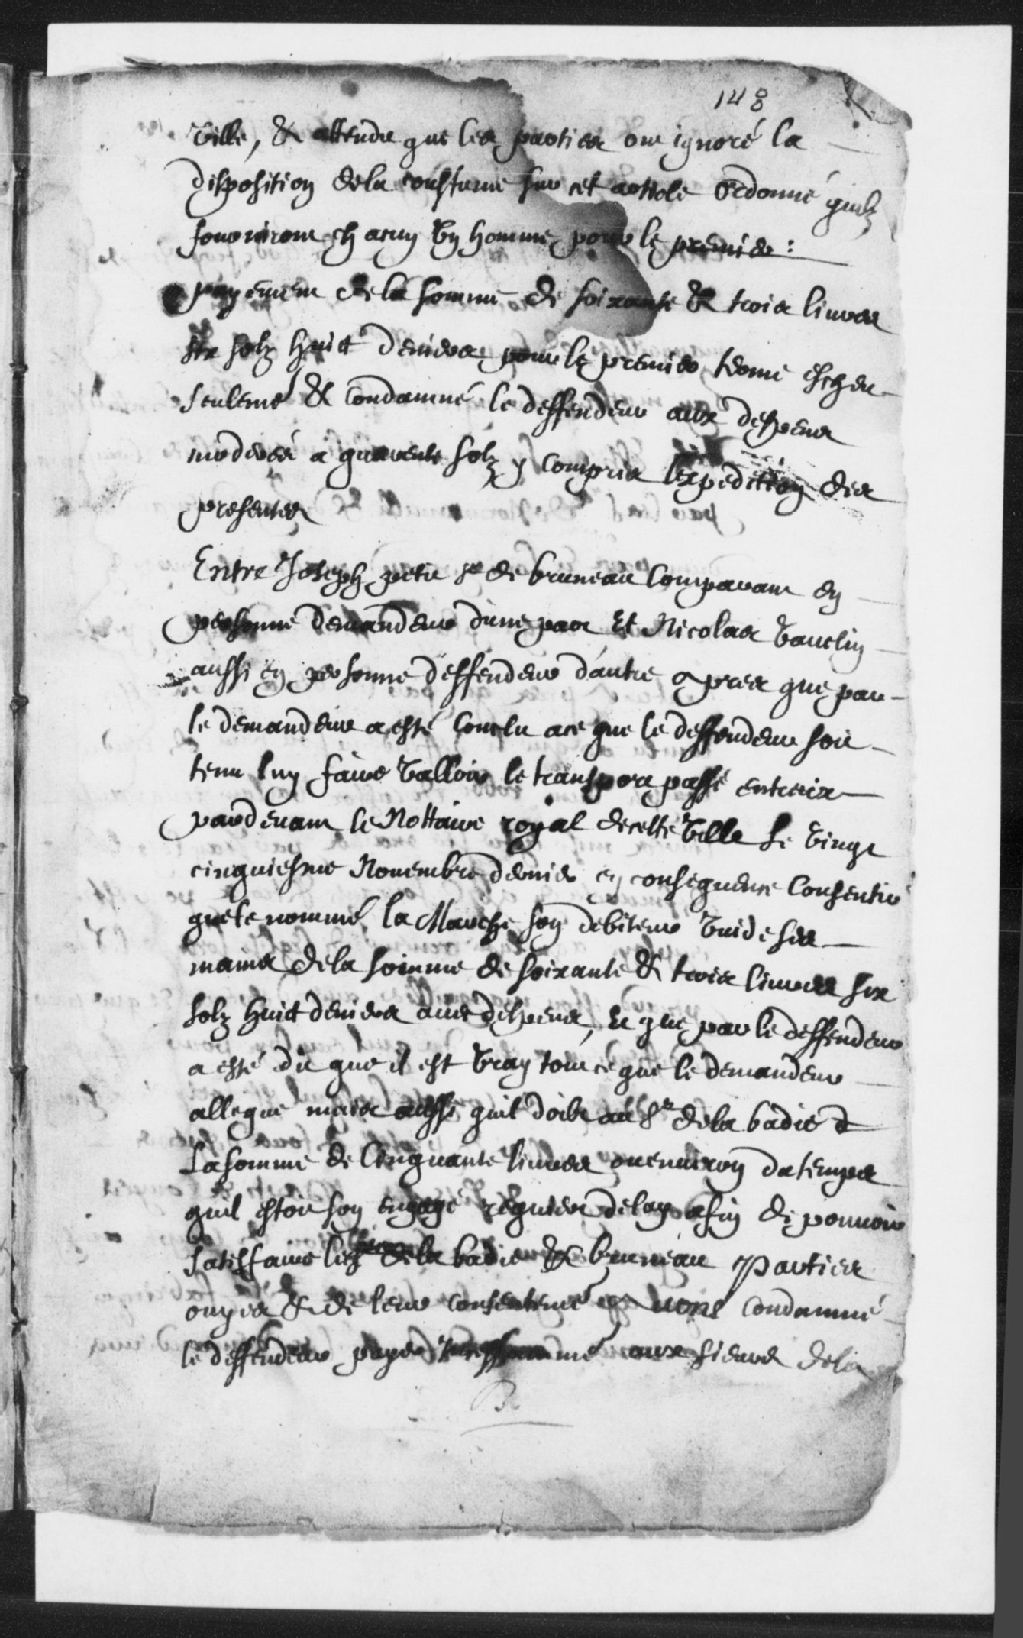 148
Ville, & attendu que les parties ont ignoré la
disposition dela coustume sur cet article Ordonné quilz
fourniront chacun Un homme pour le premier :
payement de la somme de soixante & trois livres
six solz huict deniers pour le premier terme escheu
seulemt & Condamné le deffendeur aux despens
moderés a quarente solz y Compris lexpedition des
presentes
Entre Joseph petit sr de bruneau Comparant en
personne Demandeur dune part Et Nicolas Vauclin
aussi en personne deffendeur dautre apres que par
le demandeur a esté Conclu ace que le deffendeur soit
tenu luy faire Valloir le transport passé entreux
pardevant le Nottaire royal decette Ville le Vingt
cinquiesme Novembre dernier en consequence Consentir
quele nommé la Marche son debiteur Vuide ses
mains dela somme de soixante & trois livres six
solz huict deniers avec despens, Et que par le deffendeur
a esté dit que il est Vray tout ce que le demandeur
allegue mais aussi quil doibt au Sr dela badie
La somme de Cinquante livres ouenviron du temps
quil estoit son engagé requiert delay afin de pouvoir
satisffaire lesd dela badie & bruneau Parties
ouyes & de leur consentemt avons Condamné
le deffendeur payer aux sieurs dela
B